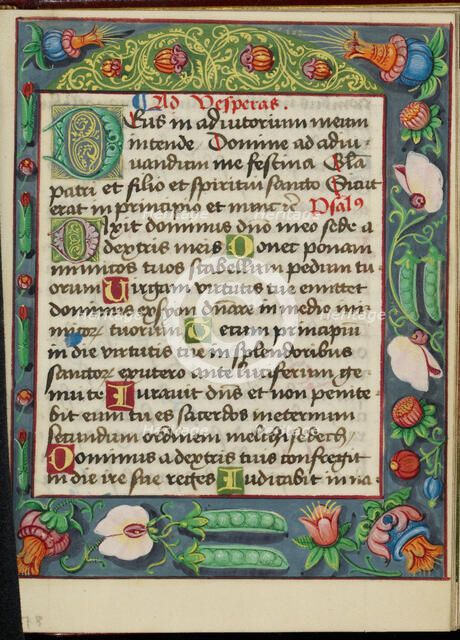 Ad Vesperas.
Deus in adiutorium meum
intende Domine ad adiu
uandum me festina Gl̄a
patri et filio et spiritui sancto Sicut
erat in principio et nunc Psalꝰ
Dixit dominus dn̄o meo sede a
dextris meis Donec ponam
inimicos tuos scabellum pedum tu
orum Uirgam virtutis tue emittet
dominus ex syon dn̄are in medio inni
micoꝝ tuorum Tecum principiū
in die virtutis tue in splendoribus
sanctoꝝ ex utero ante luciferum ge
nui te Iurauit dn̄s et non penite
bit eum tu es sacerdos in eternum
secundum ordinem melchisedech
Dominus a dextris tuis confregit
in die ire sue reges Iudicabit in na
Heritage
Heritage
Heritage
Heritage
Heritage